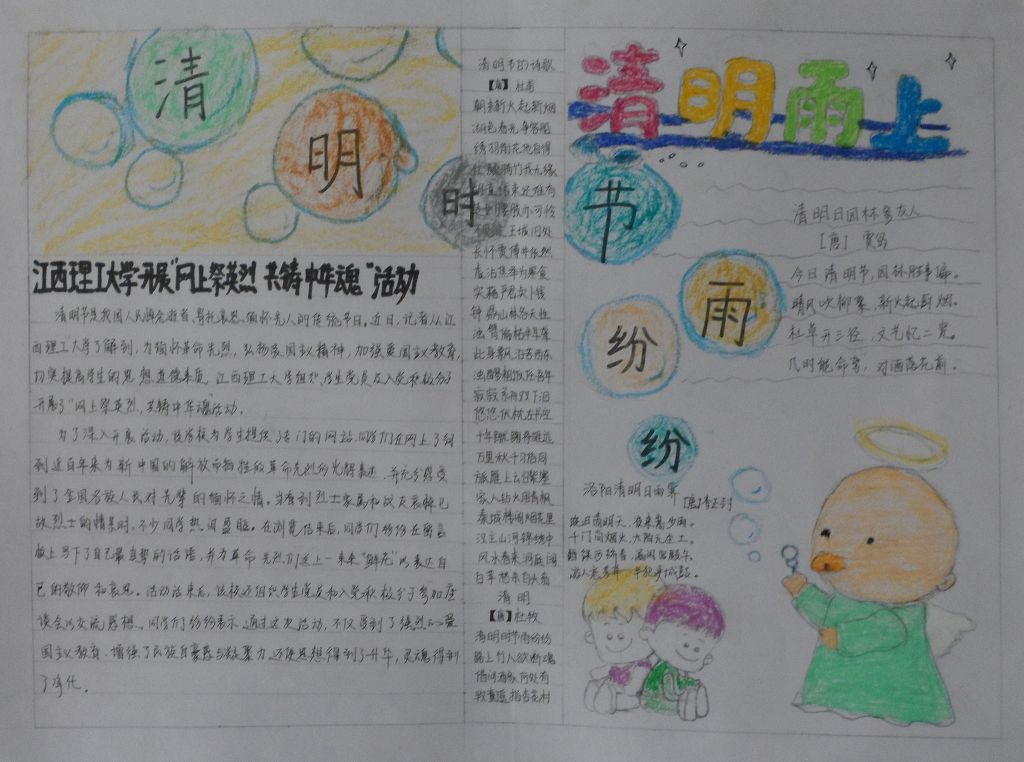 清
明
时
节
雨
纷
纷
江西理工大学开展“网上祭英烈 共铸中华魂”活动
清明节是我国人民悼念逝者、寄托哀思、缅怀先人的传统节日。近日，记者从江
西理工大学了解到，为缅怀革命先烈，弘扬爱国主义精神，加强爱国主义教育，
切实提高学生的思想道德素质，江西理工大学组织学生党员及入党积极分子
开展了“网上祭英烈、共铸中华魂”活动。
为了深入开展活动，该学校为学生提供了专门的网站，同学们在网上了解
到近百年来为新中国的解放而牺牲的革命先烈的光辉事迹，并充分感受
到了全国各族人民对先辈的缅怀之情。当看到烈士家属和战友哀悼已
故烈士的情景时，不少同学热泪盈眶。在浏览结束后，同学们纷纷在留言
板上写下了自己最真挚的话语，并为革命先烈们送上一束束“鲜花”以表达自
己的敬仰和哀思。活动结束后，该校还组织学生党员和入党积极分子参加座
谈会以交流感想。同学们纷纷表示，通过这次活动，不仅受到了强烈的爱
国主义教育，增强了民族自豪感与凝聚力，还使思想得到了升华，灵魂得到
了净化。
清明节的诗歌
【唐】杜甫
朝来新火起新烟
湖色春光净客船
绣羽衔花他自得
红颜骑竹我无缘
不见
王城旧处
长怀贾傅井依然
虚沾焦举为寒食
实藉严君卖卜钱
钟鼎山林各天性
浊醪粗饭任吾年
此身飘泊苦西东
右臂偏枯半耳聋
寂寂系舟双下泪
悠悠伏枕左书空
十年蹴鞠将雏远
万里秋千习俗同
旅雁上云归紫塞
家人钻火用青枫
秦城楼阁烟花里
汉主山河锦绣中
风水春来洞庭阔
白苹愁杀白头翁
清明
【唐】杜牧
清明时节雨纷纷
路上行人欲断魂
借问酒家何处有
牧童遥指杏花村
清明雨上
清明日园林寄友人
［唐］ 贾岛
今日清明节，园林胜事偏。
晴风吹柳絮，新火起厨烟。
杜草开三径，文章忆二贤。
几时能命驾，对酒落花前。
洛阳清明日雨霁
［唐］李正封
晓日清明天，夜来嵩少雨。
千门尚烟火，九陌无尘土。
酒绿河桥春，漏闲宫殿午。
游人恋芳草，半犯严城鼓。